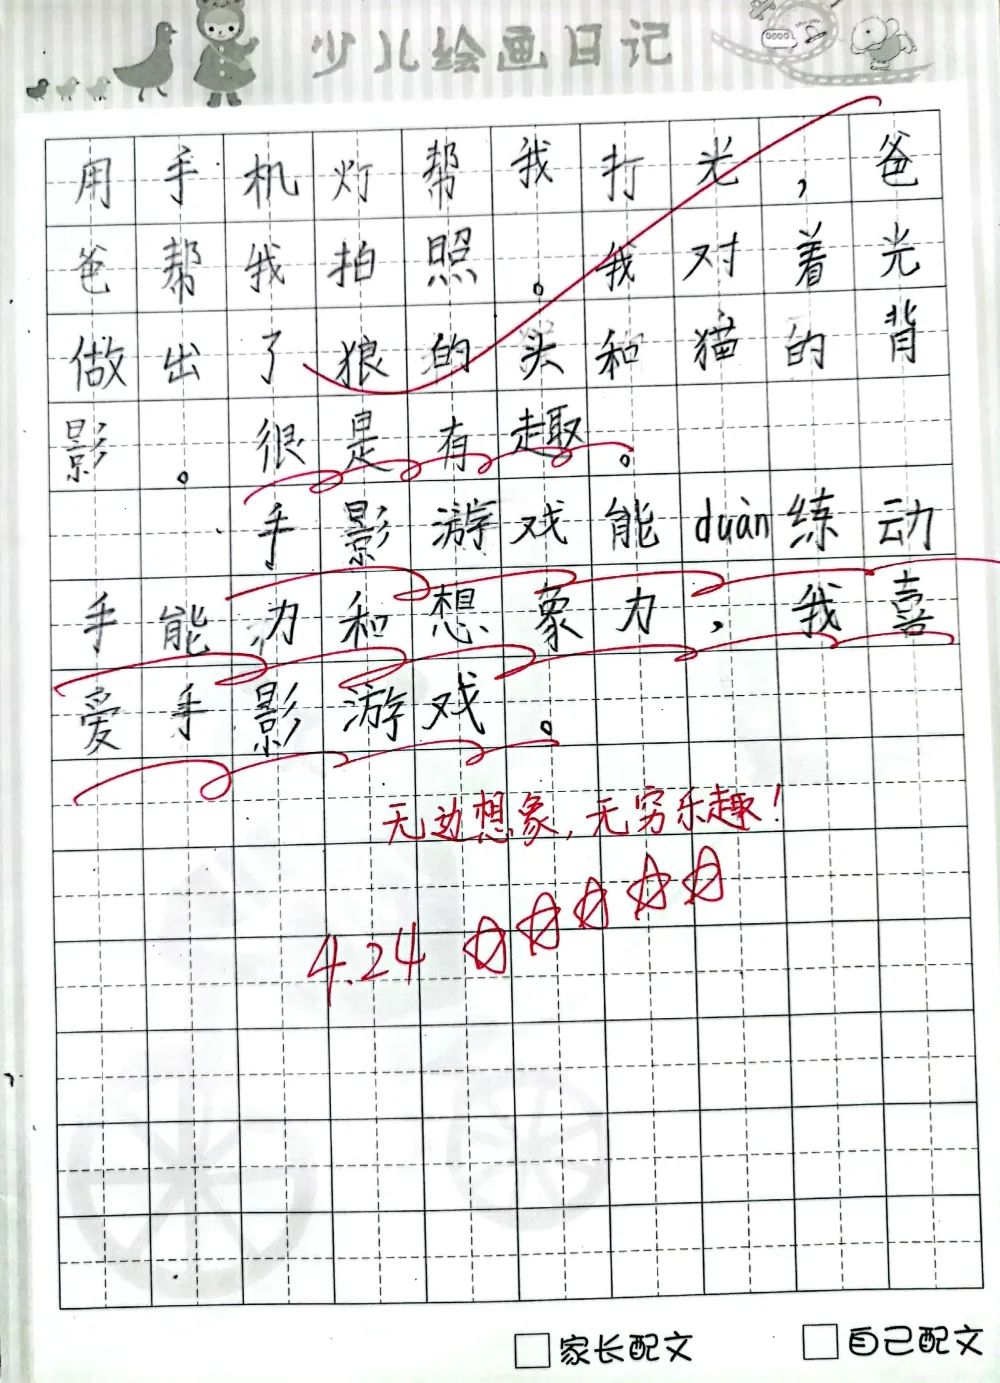 少儿绘画日记
用手机灯帮我打光，爸
爸帮我拍照。我对着光
做出了狼的头和猫的背
影。很是有趣。
手影游戏能duàn练动
手能力和想象力，我喜
爱手影游戏。
无边想象，无穷乐趣！
4.24
家长配文
自己配文